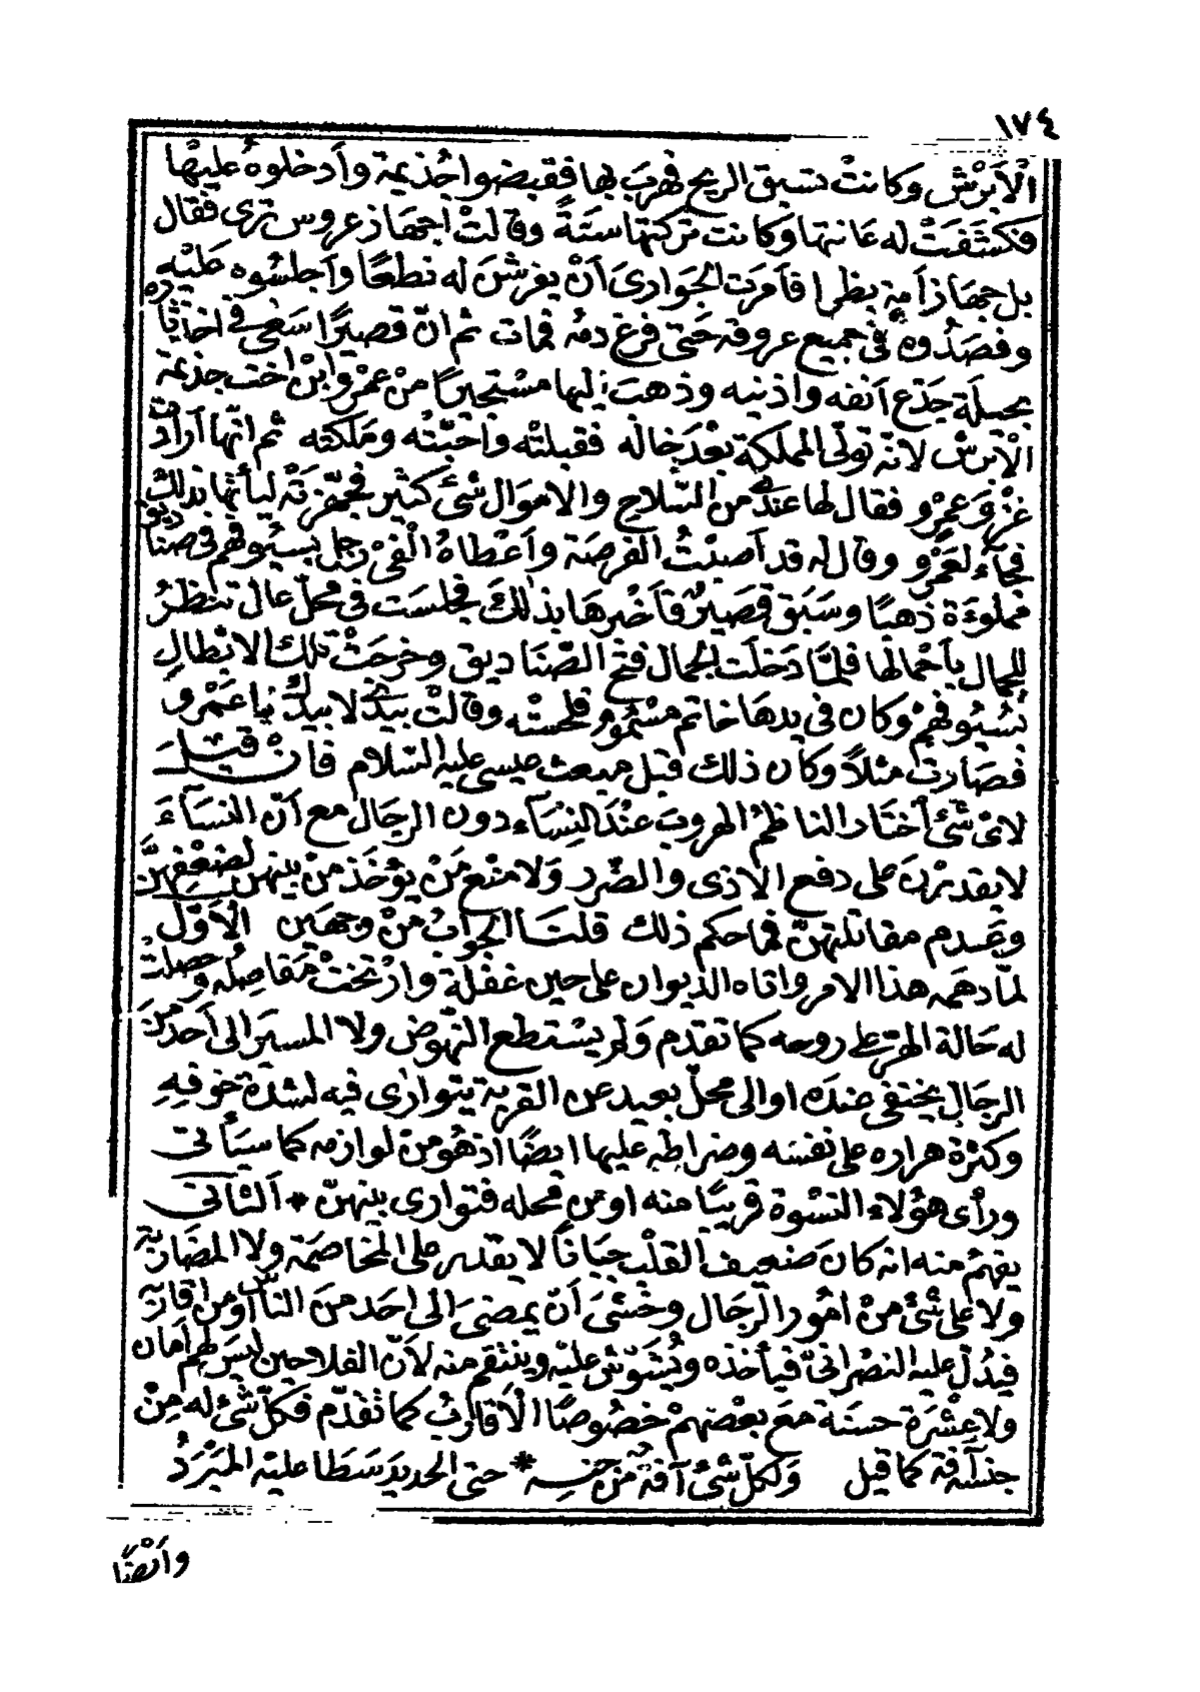 ١٧٤
الْاَبْرَشِ وكانتْ تسبق الريح فهربَ بها فقبضوا جُذيمة وأَدخلوهُ عليْها
فكشَفَتْ له عَانتها وكانت تركتها سَنَةً وقالتْ اجهَاز عروسٍ ترى فقال
بل جهَاز أَمةٍ بظرا فأَمرت الجَوارىَ أَنْ يفرشنَ له نطعًا وأَجلسُوه عليْه
وفصَدُوه فى جميع عروقه حَتى فرغ دمُه فمات ثم انّ قصيرًا سَعى فى اخذ ثاره
بحيلةٍ جَدَع اَنفه واذنيه وذهبَ اليها مسْتجيرًا منْ عمْرو ابنْ اخت جذيمة
الْابْرشْ لانّه تولّى المملكة بعْدَ خاله فقبلتْه واَحبّتْه ومَلكته ثم انّها اَرادتْ
غزْوَ عمْرٍو فقال لها عندى من السّلاح والاموال شئ كثير فجهّزتْه ليأتيها بذلكْ
فجآء لعَمْرٍو وقال له قد أصبْتُ الفرصَة وأَعْطاهُ الْفىْ رجل بسيُوفهم فى صناديق
مملوءَة ذهبًا وسَبَق قصيرٌ فأَخبرهَا بذلكَ فجلسَت فى محلّ عال تنظرُ
للجمال بأَحْمالها فلمَّا دَخلَت الجمال فتح الصّنَاديق وخرجَتْ تلك الابْطالِ
بسُيُوفهمْ وكان فى يدهَا خاتم مسْمُومٌ فلحسَتْه وقالتْ بيَدى لا بيدكْ يا عَمْرو
فصَارتْ مثلاً وكان ذلك قبل مبعث عيسى عليه السّلام فانْ قيلَ
لاىّ شئ أختار الناظمُ الهروبَ عنْدَ النِسَاء دون الرجال مع أَنّ النسَآءَ
لا يقدرْنَ على دفع الاذى والضّرر وَلا منْع مَنْ يؤْخَذ منْ بينهنّ لضعْفهنَّ
وعَدم مقاتلتهنّ فما حكم ذلك قلتُ الجَوابُ منْ وجهَين الاَوّل
لمّا دهمَه هذا الامر واتاه الديوان على حين غفْلة وارْتختْ مَفاصِله وحصلتْ
له حَالة الهرّ على روحه كما تقدم وَلم يسْتطع النّهوُض ولا المسير الى أَحد منَ
الرجَال يختفى عندَه او الى محلّ بعيد عن القرية يتوارَى فيه لشدّة خوفِهِ
وكثرة هراره على نفسَه وضراطِه عليها ايضًا اذ هُو منْ لوازمه كما سيَأتى
ورأى هؤلاءِ النسْوة قريبًا منه او من محله فتوارى بينهنّ * اَلثانى
يفهمُ منه انّه كانَ ضعيف القلْب جبَاناً لا يقدر على المخاصَمة ولا المضَاربة
ولا على شئ منْ امُور الرجَال وخشىَ أنْ يمضىَ الى احَد منَ النّاس او من اقاربه
فيدُلّ عليه النصْرانىّ فيأخذه ويُشوّش عليْه وينتقم منه لاَنّ الفلاحين ليسَ لهم أمان
ولا عشْرة حسَنة مَع بعْضِهمْ خصُوصًا الاَقاربُ كما تقْدّم فكلّ شئ له مِنْ
جنْسه آفة كما قيل ولكلّ شئ آفة منْ جنسِه * حتى الحديد سَطا عليْه المبْرَدُ
وايْضًا